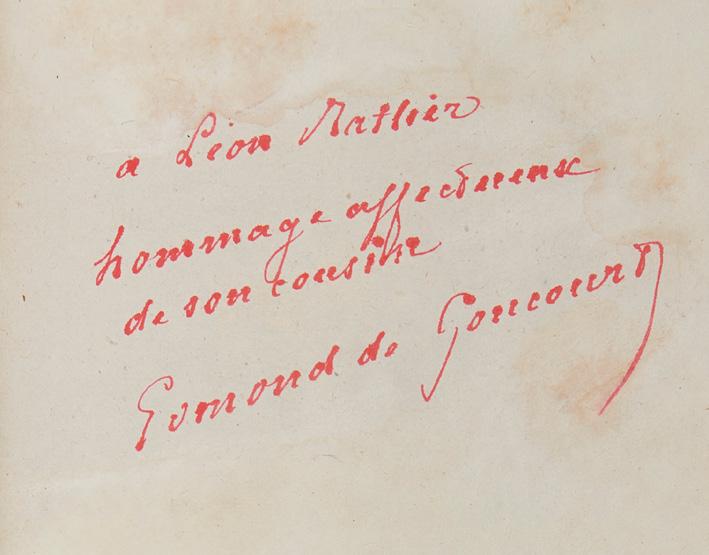 a Léon Rattier
hommage affectueux
de son cousin
Edmond de Goncourt